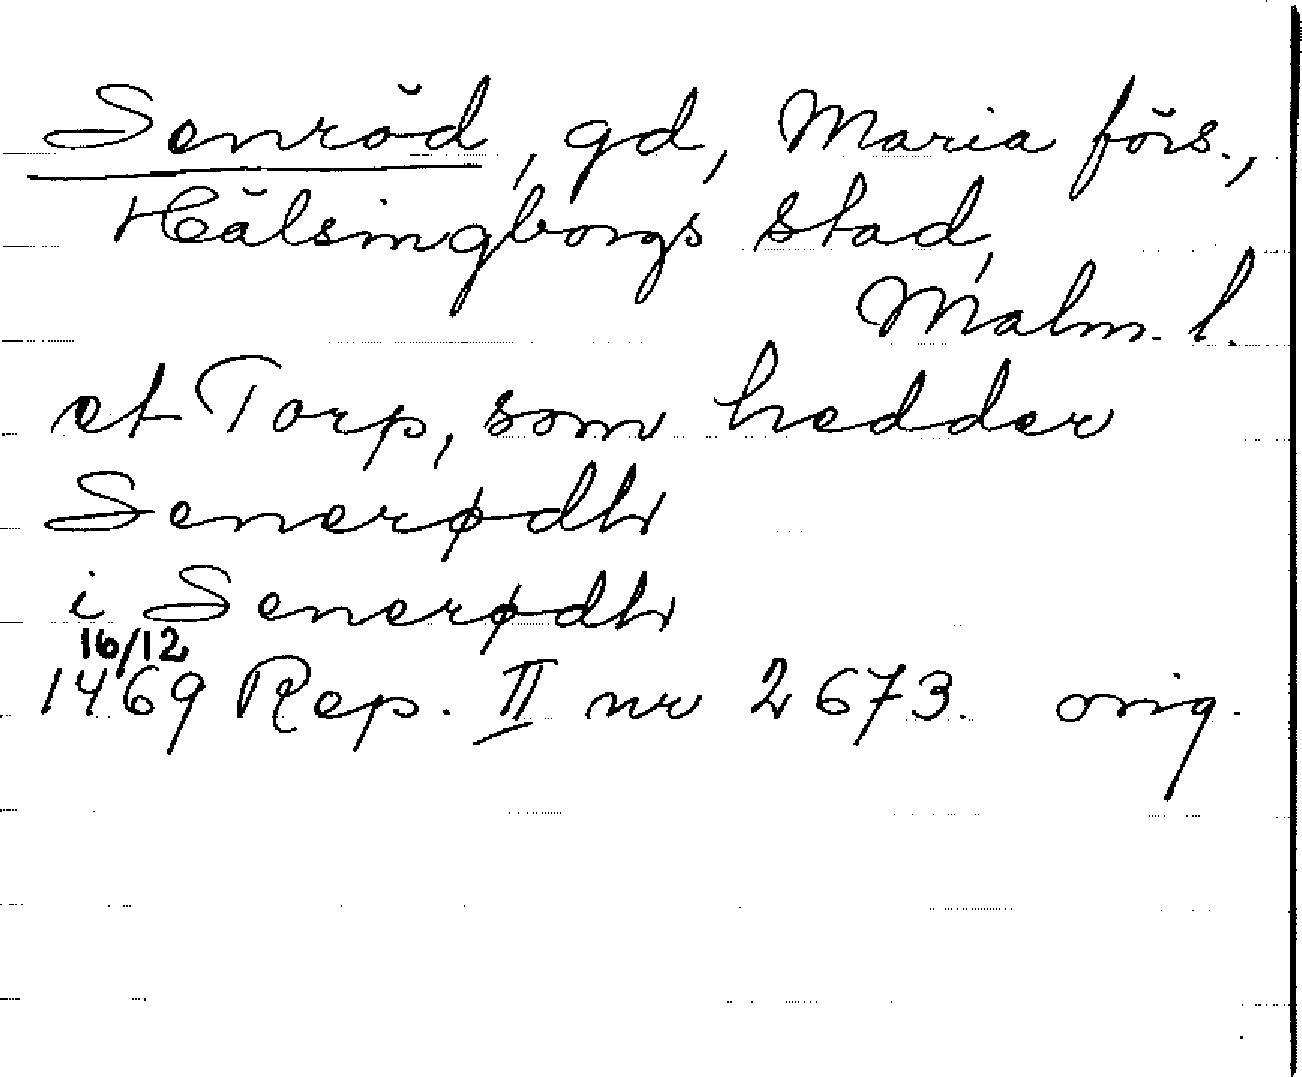 Senröd, gd, Maria förs.,
Hälsingborgs stad,
Malm. l.
et Torp, som hedder
Senerødh
i Senerødh
16/12
1469 Rep. II nr 2673. orig.